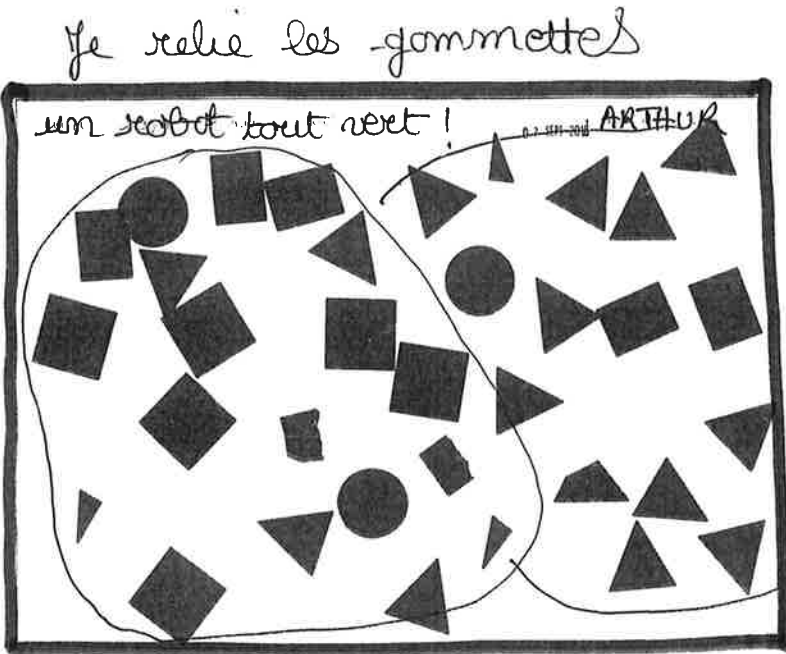 Je relie les gommettes
un robot tout vert !
07 SEPT 2018 ARTHUR